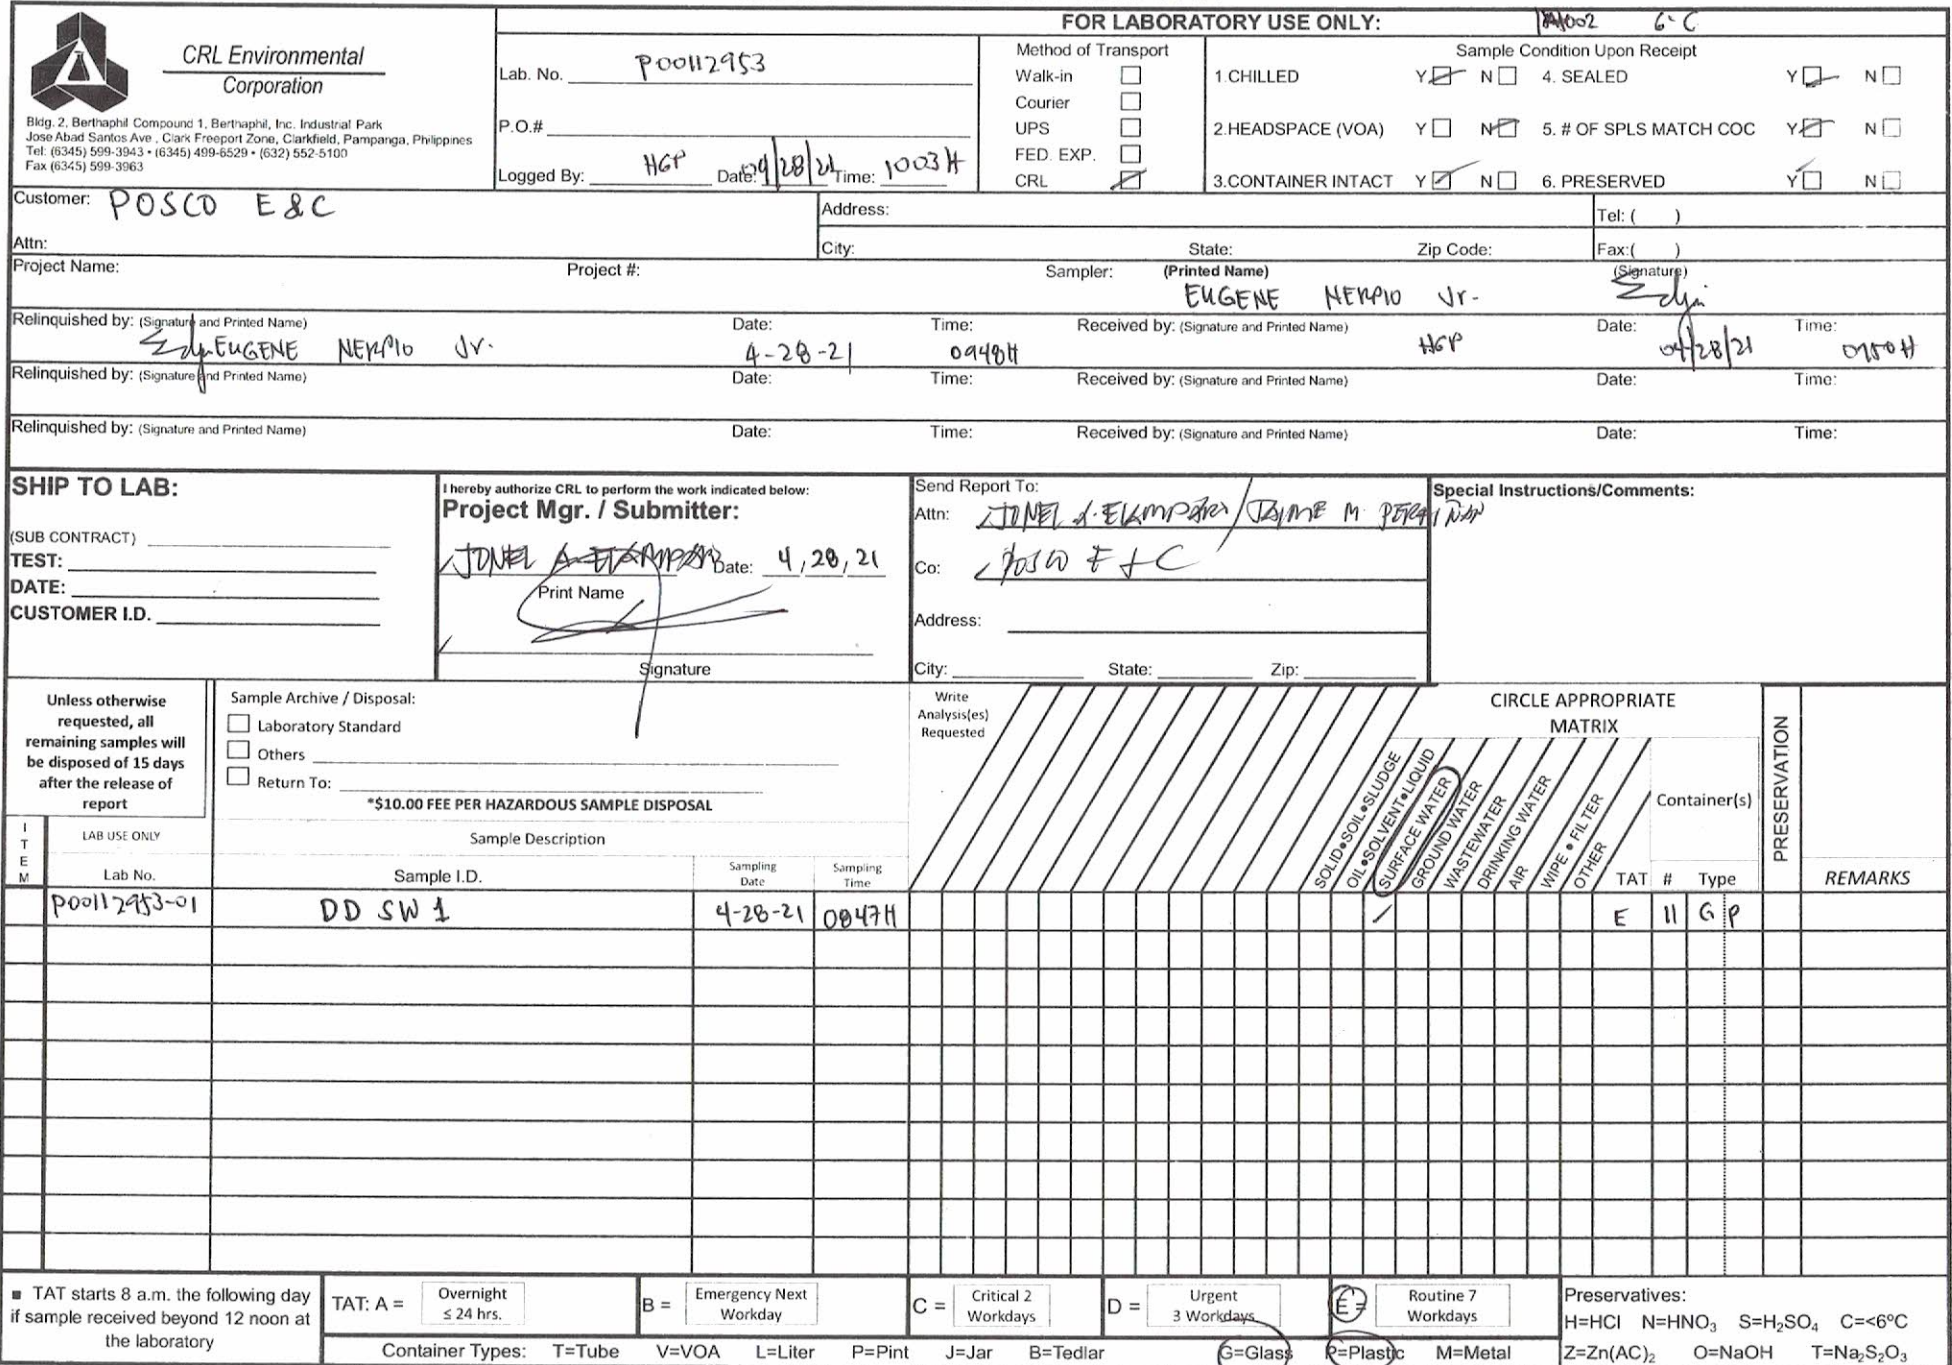 FOR LABORATORY USE ONLY: 6°C
CRL Environmental
Corporation
Bldg. 2, Berthaphil Compound 1, Berthaphil, Inc. Industrial Park
Jose Abad Santos Ave , Clark Freeport Zone, Clarkfield, Pampanga, Philippines
Tel: (6345) 599-3943 • (6345) 499-6529 • (632) 552-5100
Fax (6345) 599-3963
Lab. No. P00112953
P.O.#
Logged By: HGP Date: 04/28/21 Time: 1003H
Method of Transport
Walk-in
Courier
UPS
FED. EXP.
CRL
Sample Condition Upon Receipt
1.CHILLED Y N 4. SEALED Y N
2.HEADSPACE (VOA) Y N 5. # OF SPLS MATCH COC Y N
3.CONTAINER INTACT Y N 6. PRESERVED Y N
Customer: POSCO E&C
Attn:
Address:
City: State: Zip Code:
Tel: ( )
Fax:( )
Project Name: Project #: Sampler: (Printed Name) (Signature)
EUGENE NERPIO Jr.
Relinquished by: (Signature and Printed Name) Date: Time: Received by: (Signature and Printed Name) Date: Time:
EUGENE NERPIO Jr. 4-28-21 0948H HGP 04/28/21 0950H
Relinquished by: (Signature and Printed Name) Date: Time: Received by: (Signature and Printed Name) Date: Time:
Relinquished by: (Signature and Printed Name) Date: Time: Received by: (Signature and Printed Name) Date: Time:
SHIP TO LAB:
(SUB CONTRACT)
TEST:
DATE:
CUSTOMER I.D.
I hereby authorize CRL to perform the work indicated below:
Project Mgr. / Submitter:
JONEL Date: 4,28,21
Print Name
Signature
Send Report To:
Attn: JONEL / JAIME M.
Co: POSCO E & C
Address:
City: State: Zip:
Special Instructions/Comments:
Unless otherwise
requested, all
remaining samples will
be disposed of 15 days
after the release of
report
Sample Archive / Disposal:
Laboratory Standard
Others
Return To:
*$10.00 FEE PER HAZARDOUS SAMPLE DISPOSAL
Write
Analysis(es)
Requested
CIRCLE APPROPRIATE
MATRIX
SOLID•SOIL•SLUDGE
OIL•SOLVENT•LIQUID
SURFACE WATER
GROUND WATER
WASTEWATER
DRINKING WATER
AIR
WIPE • FILTER
OTHER
Container(s)
PRESERVATION
ITEM
LAB USE ONLY
Lab No.
Sample Description
Sample I.D.
Sampling
Date
Sampling
Time
TAT # Type
REMARKS
P00112953-01 DD SW 1 4-28-21 0847H E 11 G P
■ TAT starts 8 a.m. the following day
if sample received beyond 12 noon at
the laboratory
TAT: A = Overnight
≤ 24 hrs.
B = Emergency Next
Workday
C = Critical 2
Workdays
D = Urgent
3 Workdays
E = Routine 7
Workdays
Container Types: T=Tube V=VOA L=Liter P=Pint J=Jar B=Tedlar G=Glass P=Plastic M=Metal
Preservatives:
H=HCl N=HNO₃ S=H₂SO₄ C=<6°C
Z=Zn(AC)₂ O=NaOH T=Na₂S₂O₃